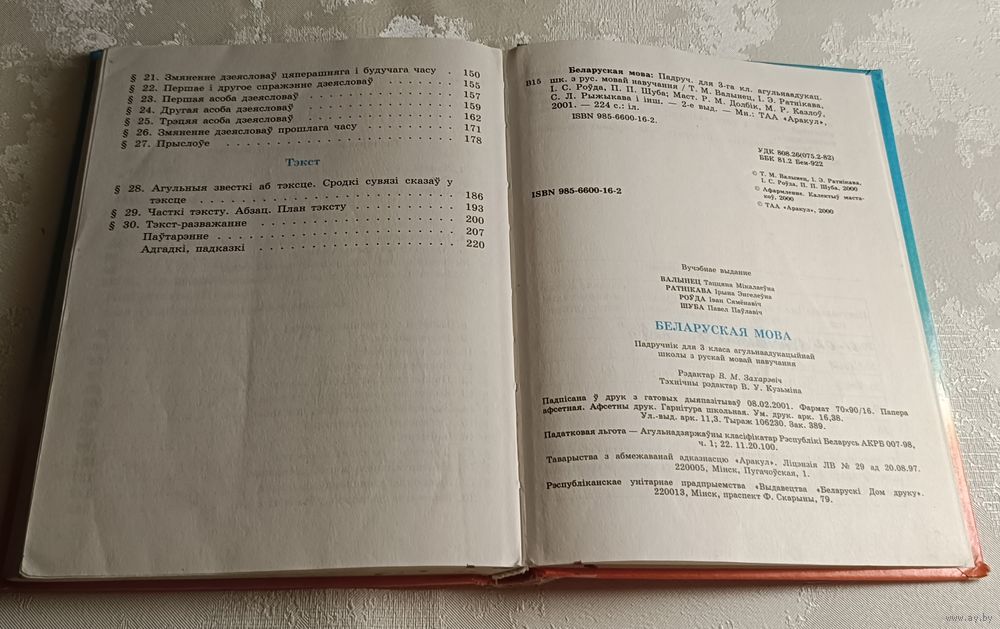 § 21. Змяненне дзеясловаў цяперашняга і будучага часу . 150
§ 22. Першае і другое спражэнне дзеясловаў . . . . . . 155
§ 23. Першая асоба дзеясловаў . . . . . . . . . . . . 157
§ 24. Другая асоба дзеясловаў . . . . . . . . . . . . 159
§ 25. Трэцяя асоба дзеясловаў . . . . . . . . . . . . 162
§ 26. Змяненне дзеясловаў прошлага часу . . . . . . . . 171
§ 27. Прыслоўе . . . . . . . . . . . . . . . . . . 178
Тэкст
§ 28. Агульныя звесткі аб тэксце. Сродкі сувязі сказаў у
тэксце . . . . . . . . . . . . . . . . . . . 186
§ 29. Часткі тэксту. Абзац. План тэксту . . . . . . . . 193
§ 30. Тэкст-разважанне . . . . . . . . . . . . . . . 200
Паўтарэнне . . . . . . . . . . . . . . . . . 207
Адгадкі, падказкі . . . . . . . . . . . . . . . 220
Беларуская мова: Падруч. для 3-га кл. агульнаадукац.
В15 шк. з рус. мовай навучання / Т. М. Валынец, І. Э. Ратнікава,
І. С. Роўда, П. П. Шуба; Маст. Р. М. Долбік, М. Р. Казлоў,
С. Л. Рыжыкава і інш. — 2-е выд. — Мн.: ТАА «Аракул»,
2001. — 224 с.: іл.
ISBN 985-6600-16-2.
УДК 808.26(075.2-82)
ББК 81.2 Бен-922
ISBN 985-6600-16-2
© Т. М. Валынец, І. Э. Ратнікава,
І. С. Роўда, П. П. Шуба, 2000
© Афармленне. Калектыў маста-
коў, 2000
© ТАА «Аракул», 2000
Вучэбнае выданне
ВАЛЫНЕЦ Таццяна Мікалаеўна
РАТНІКАВА Ірына Энгелеўна
РОЎДА Іван Сямёнавіч
ШУБА Павел Паўлавіч
БЕЛАРУСКАЯ МОВА
Падручнік для 3 класа агульнаадукацыйнай
школы з рускай мовай навучання
Рэдактар В. М. Захарэвіч
Тэхнічны рэдактар В. У. Кузьміна
Падпісана ў друк з гатовых дыяпазітываў 08.02.2001. Фармат 70×90/16. Папера
афсетная. Афсетны друк. Гарнітура школьная. Ум. друк. арк. 16,38.
Ул.-выд. арк. 11,3. Тыраж 106230. Зак. 389.
Падатковая льгота — Агульнадзяржаўны класіфікатар Рэспублікі Беларусь АКРБ 007-98,
ч. 1; 22. 11.20.100.
Таварыства з абмежаванай адказнасцю «Аракул». Ліцэнзія ЛВ № 29 ад 20.08.97.
220005, Мінск, Пугачоўская, 1.
Рэспубліканскае унітарнае прадпрыемства «Выдавецтва «Беларускі Дом друку».
220013, Мінск, праспект Ф. Скарыны, 79.
www.ay.by